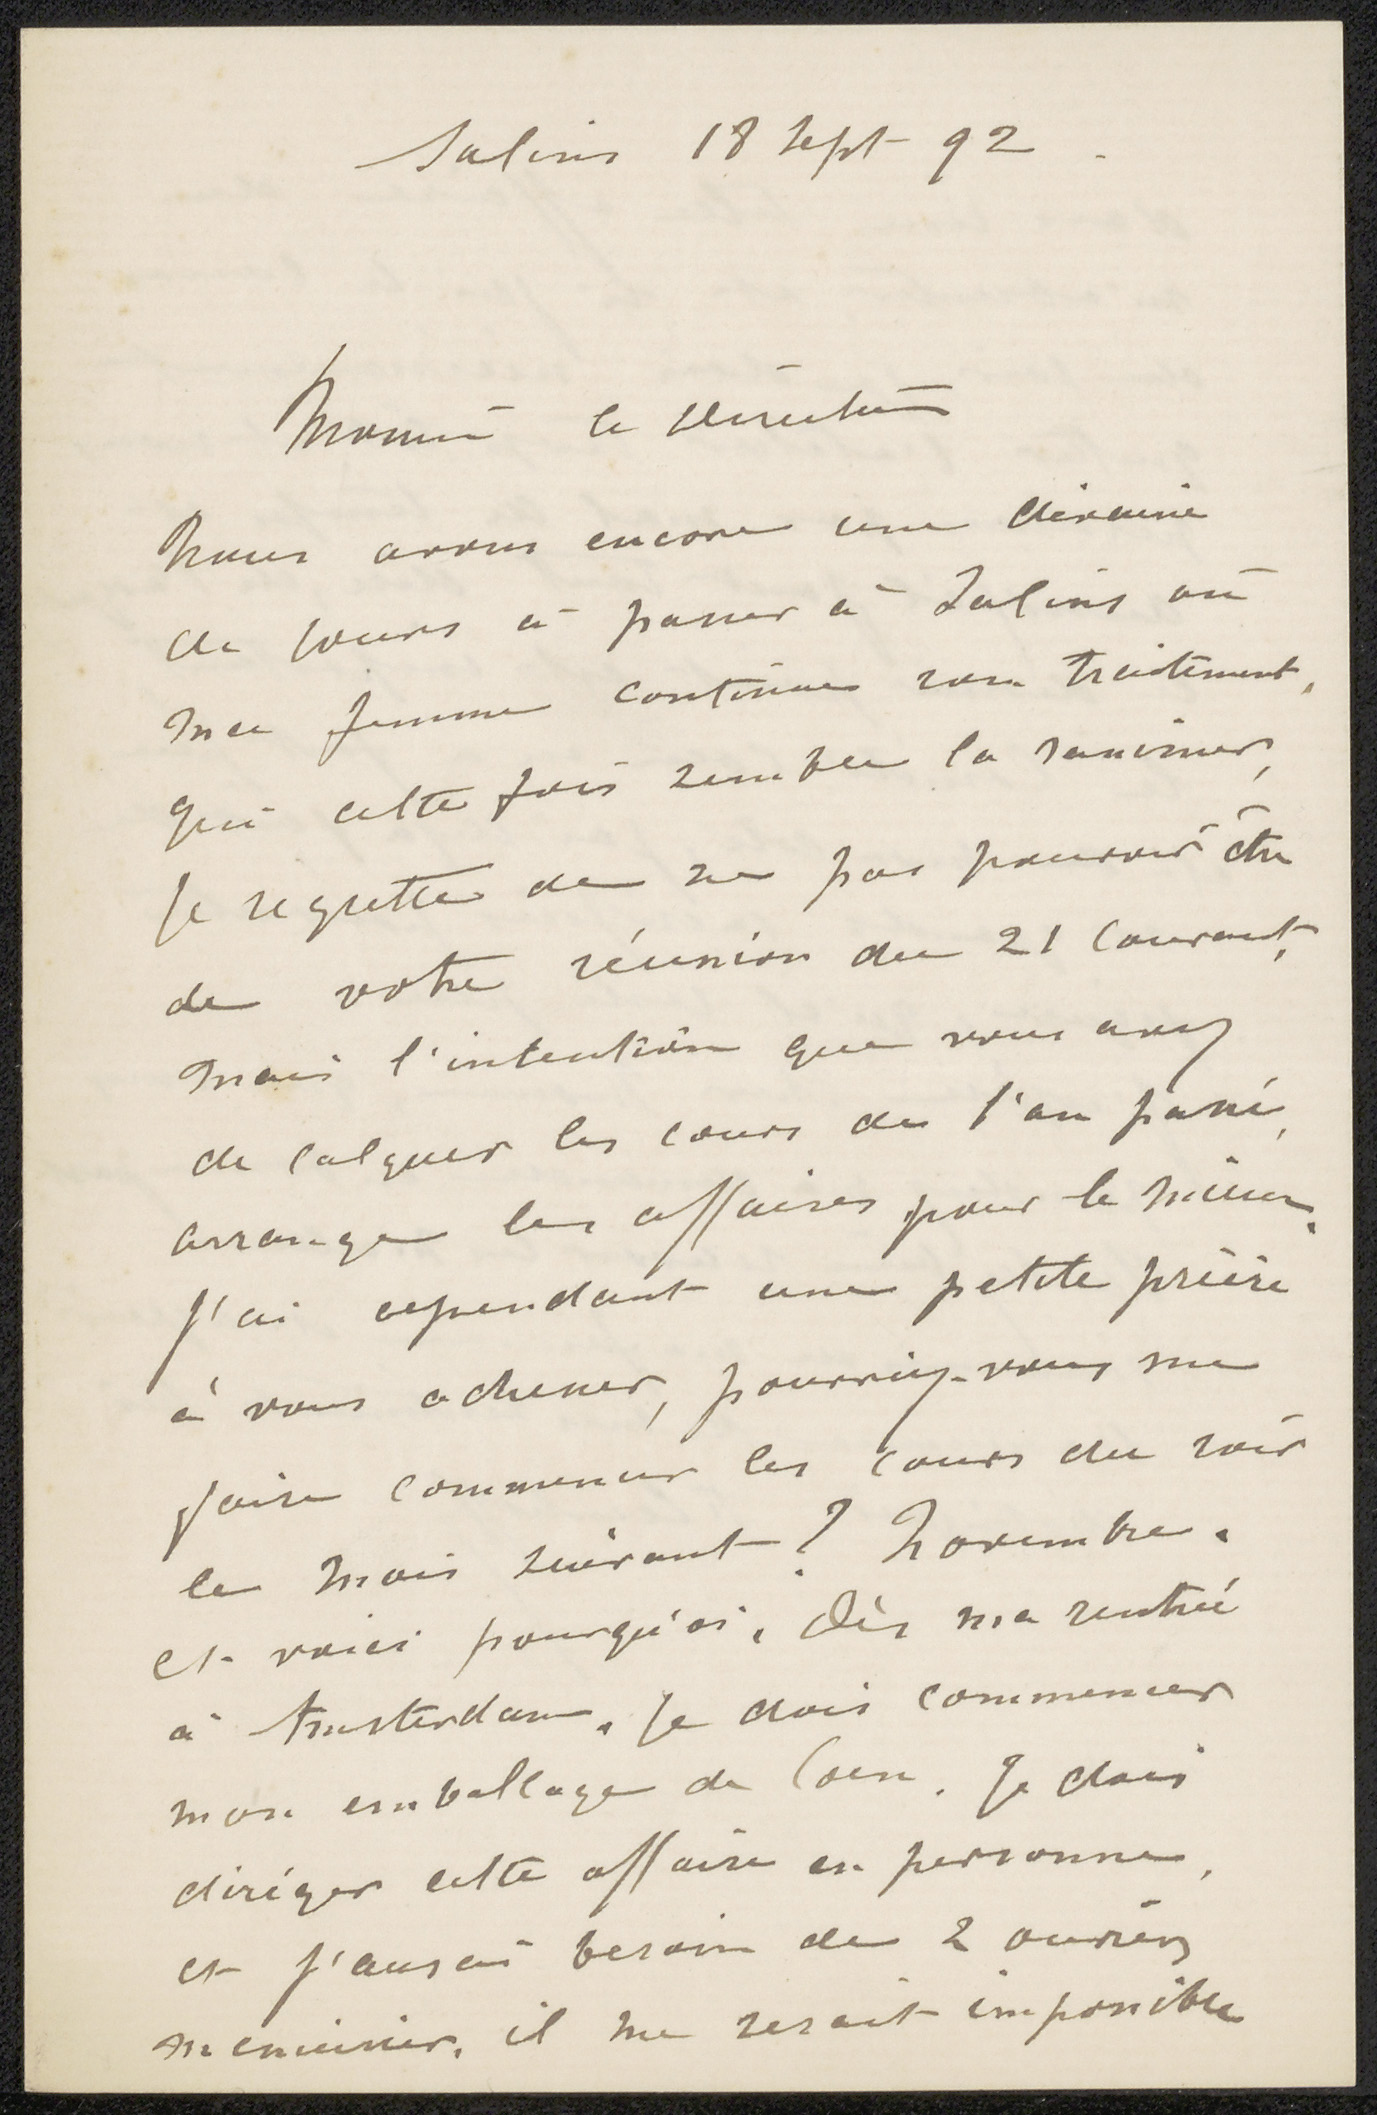 Salins 18 Sept 92.
Monsieur le Directeur
Nous avons encore une dizaine
de jours à passer à Salins où
ma femme continue son traitement,
qui cette fois semble la ranimer,
je regrette de ne pas pouvoir être
de votre réunion du 21 courant,
mais l'intention que vous avez
de calquer les cours de l'an passé,
arrange les affaires pour le mieux.
J'ai cependant une petite prière
à vous adresser, pourriez-vous me
faire commencer les cours du soir
le mois suivant? Novembre.
et voici pourquoi, dès ma rentrée
à Amsterdam. je dois commencer
mon emballage de . Je dois
diriger cette affaire en personne,
et j'aurai besoin de 2 ouvriers
menuisier, il me serait impossible